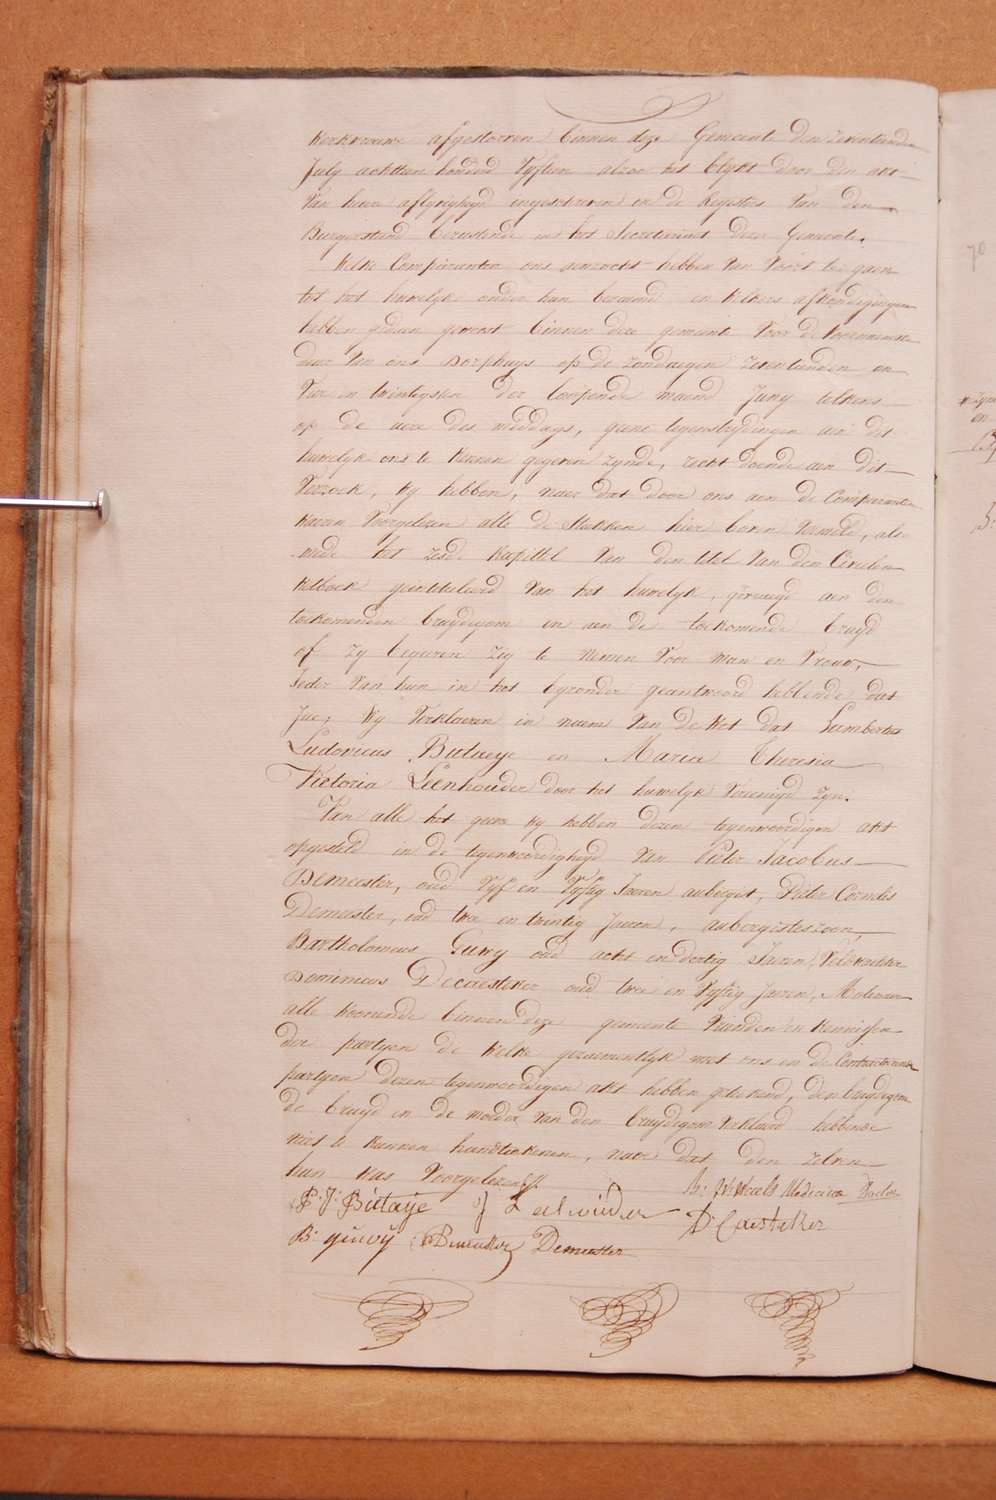 Werkvrouwe afgestorven binnen deze Gemeente den zeventienden
July achttien honderd Vyftien alzoo het blykt door den akt
van heure aflyvigheyd ingeschreven in de Registers van den
Burgerstand berustende in het Secretariaet dezer Gemeente.
Welke Comparanten ons aenzocht hebben van voort te gaen
tot het huwelyk onder hun beraemd en welkers afkondigingen
hebben gedaen geweest binnen deze gemeente voor de voornaemste
deur van ons Dorphuys op de zondaegen zeventienden en
Vier en twintigsten der loopende maend Juny telkens
op de uere des middags, geene tegenstrydingen aen dit
huwelyk ons te kennen gegeven zynde, recht doende aen dit
Verzoek, Wy hebben, naer dat door ons aen de Comparanten
waeren Voorgelezen alle de Stukken hier boven vermeld, als-
mede het zesde kapittel van den titel van den Civielen
Wetboek geintituleerd van het huwelyk, gevraegd aen den
toekomenden bruydegom en aen de toekomende bruyd
of zy begeeren zig te nemen voor man en vrouw,
Ieder van hun in het byzonder geantwoord hebbende dat
Jae, Wy Verklaeren in naem van de Wet dat Lambertus
Ludovicus Butaeye en Maria Theresia
Victoria Leenhouder door het huwelyk Vereenigd zyn.
Van alle het geene wy hebben dezen tegenwoordigen akt
opgesteld in de tegenwoordigheyd van Pieter Jacobus
Demeester, oud Vyf en Vyftig Jaeren aubergist, Pieter Cornelis
Demeester, oud twee en twintig Jaeren, aubergisteszoon,
Bartholomeus Guwy oud acht en dertig Jaeren, Veldwachter
Dominicus Decaesteker oud twee en Vyftig Jaeren, Molenaer
alle woonende binnen deze gemeente Vrienden en kennissen
der partyen de welke gezaementlyk met ons en de Contracterende
partyen dezen tegenwoordigen akt hebben geteekend, den bruydegom
de bruyd en de moeder van den bruydegom verklaerd hebbende
niet te kunnen handteekenen, naer dat den zelven
hun was Voorgelezen.
P. J. Butaije J L eelhouder Medicine Doctor
D. Caesteker
B. guwij P Demeester Demeester